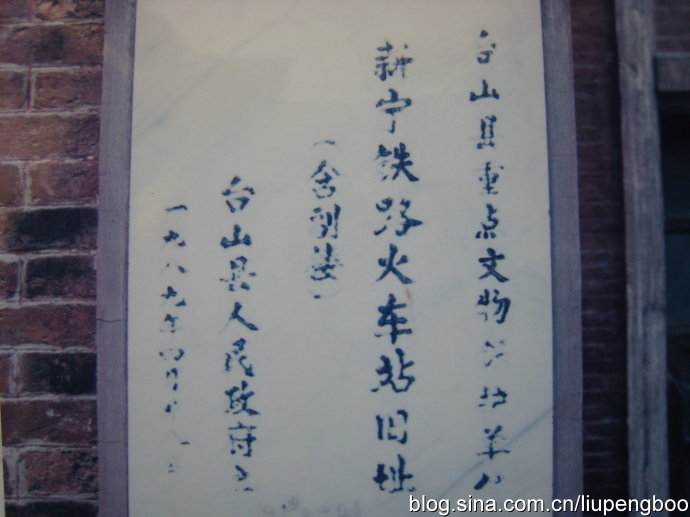 台山县重点文物保护单位
新宁铁路火车站旧址
(宁阳站)
台山县人民政府立
一九八九年四月十八日
blog.sina.com.cn/liupengboo